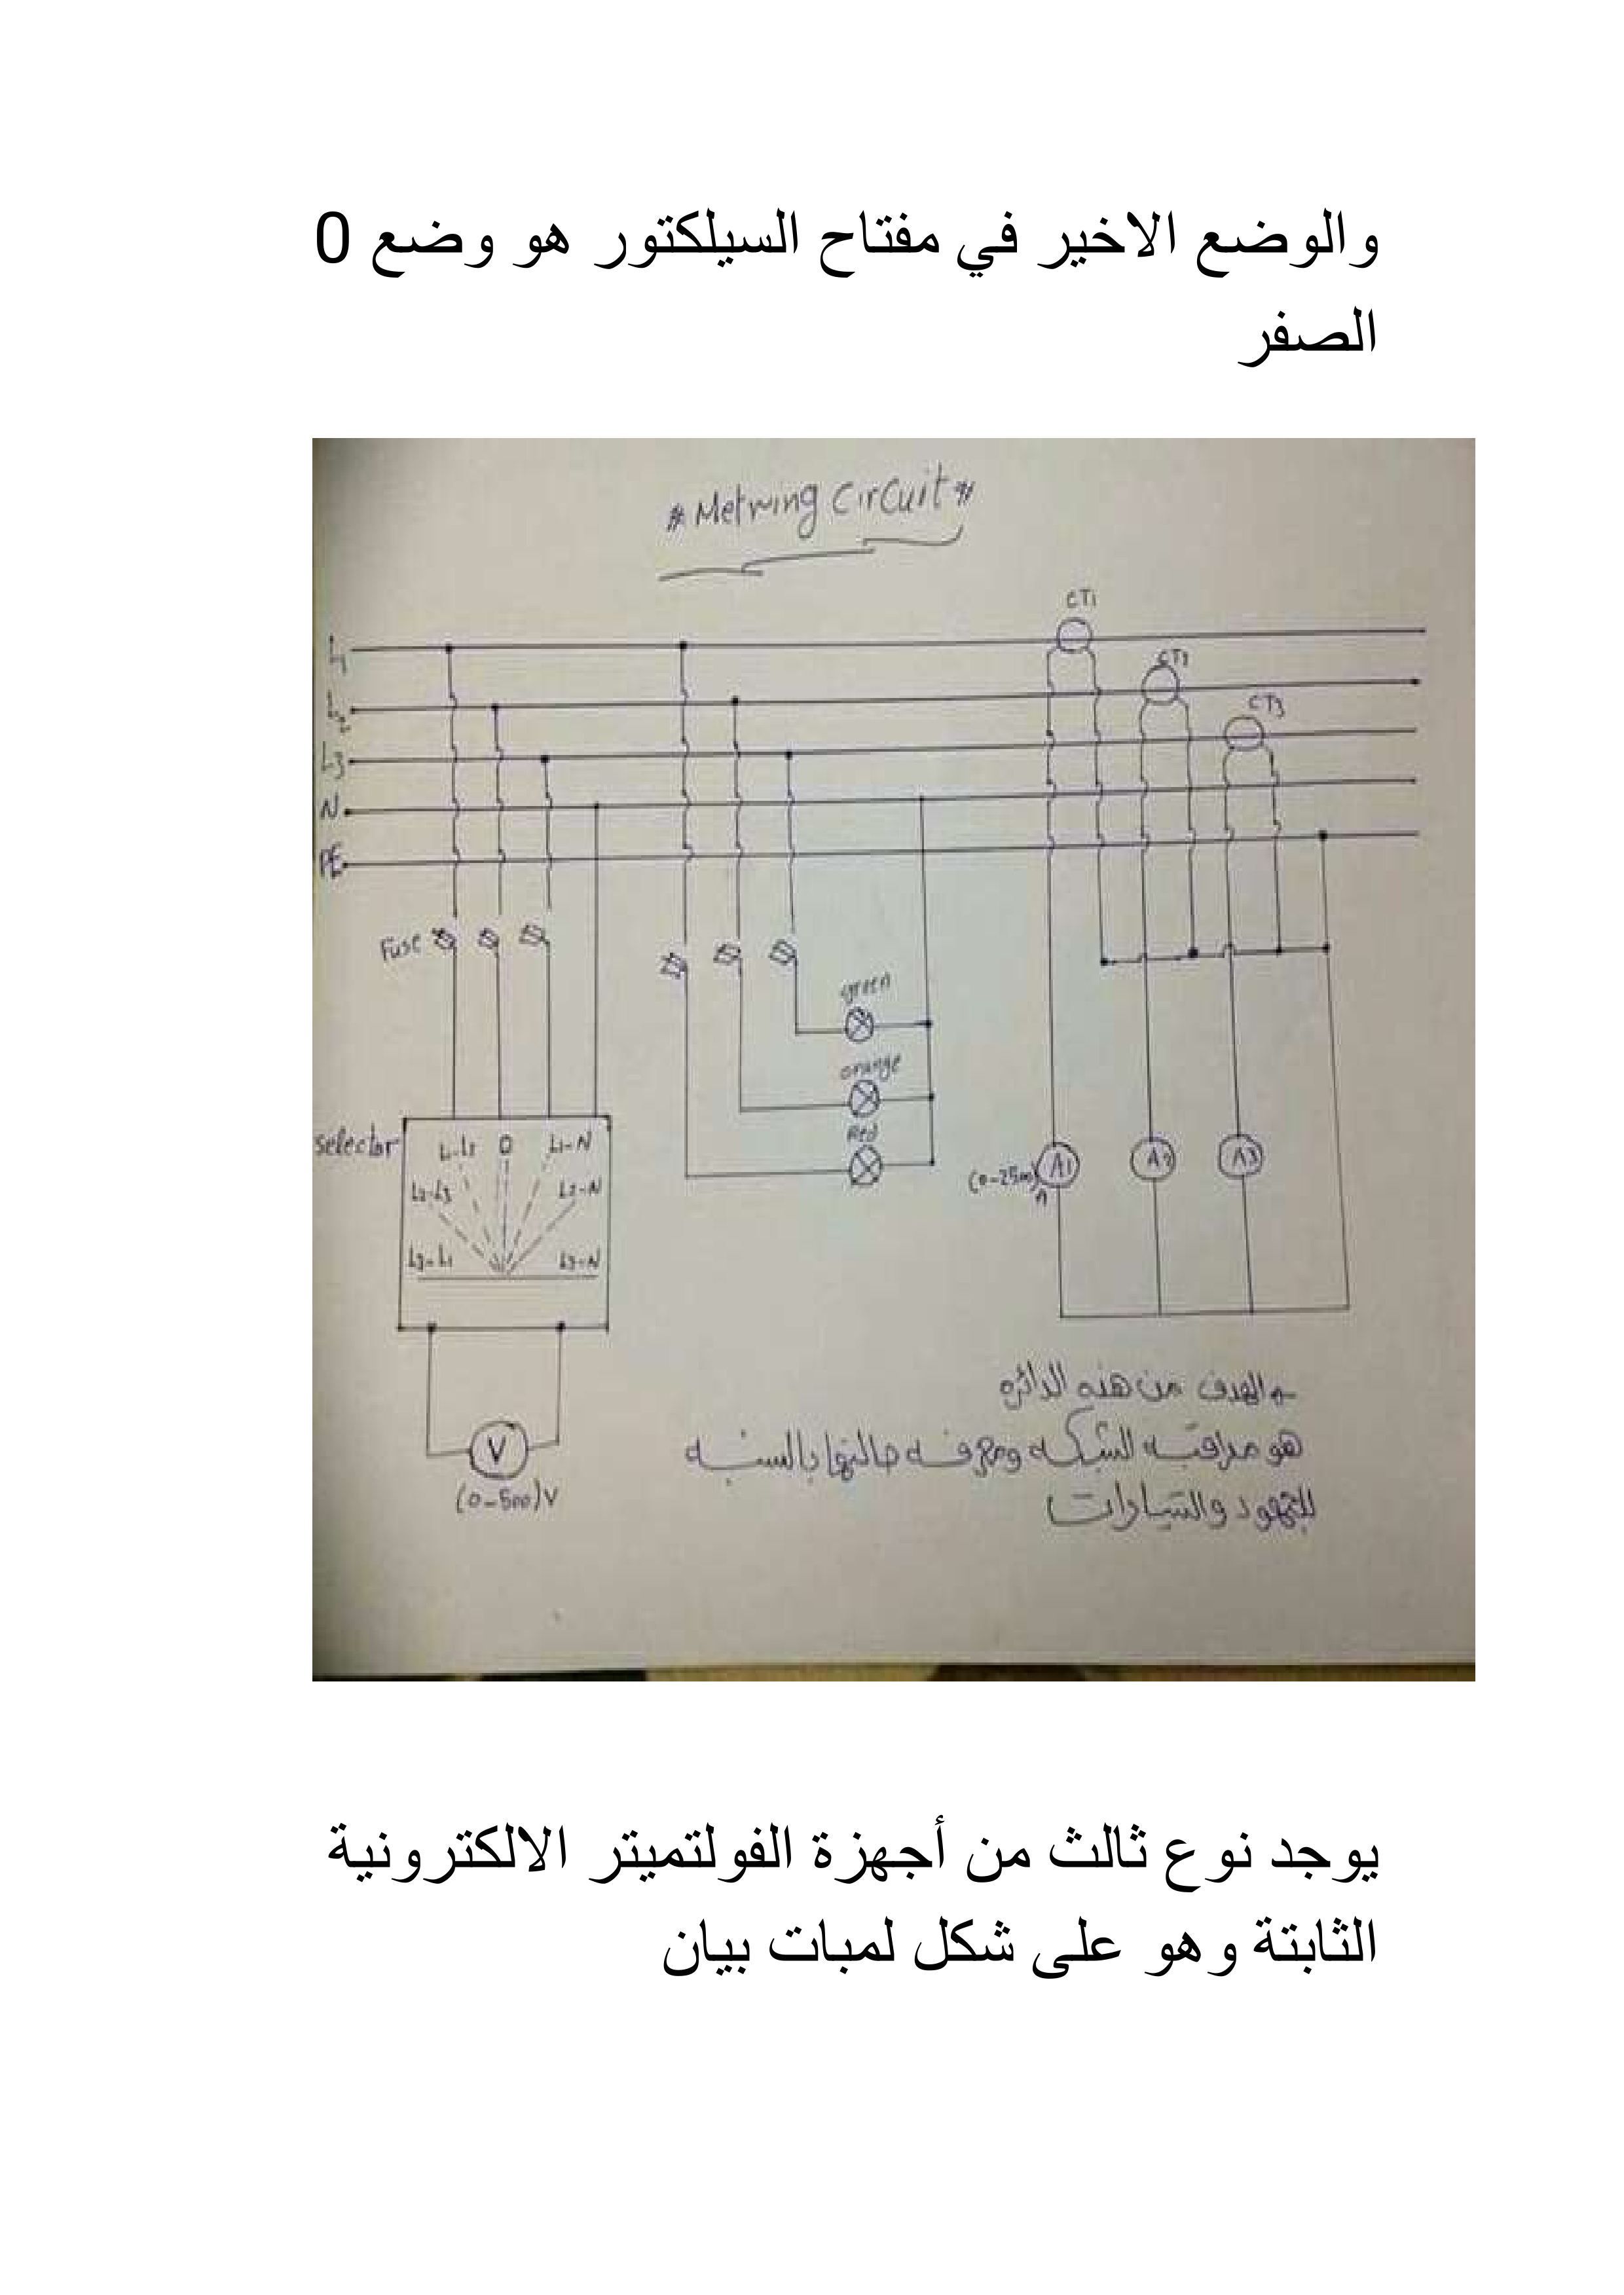 والوضع الاخير في مفتاح السيلكتور هو وضع 0
الصفر
# Metring Circuit #
CT1
L1
CT2
L2
CT3
L3
N
PE
Fuse
green
orange
Red
selector
L1-L2 0 L1-N
L2-L3 L2-N
L3-L1 L3-N
A1 A2 A3
(0-2500)
A
V
(0-500)V
الهدف من هذه الدائره
هو مراقبه الشبكه ومعرفه حالتها بالنسبه
للجهود والتيارات
يوجد نوع ثالث من أجهزة الفولتميتر الالكترونية
الثابتة وهو على شكل لمبات بيان